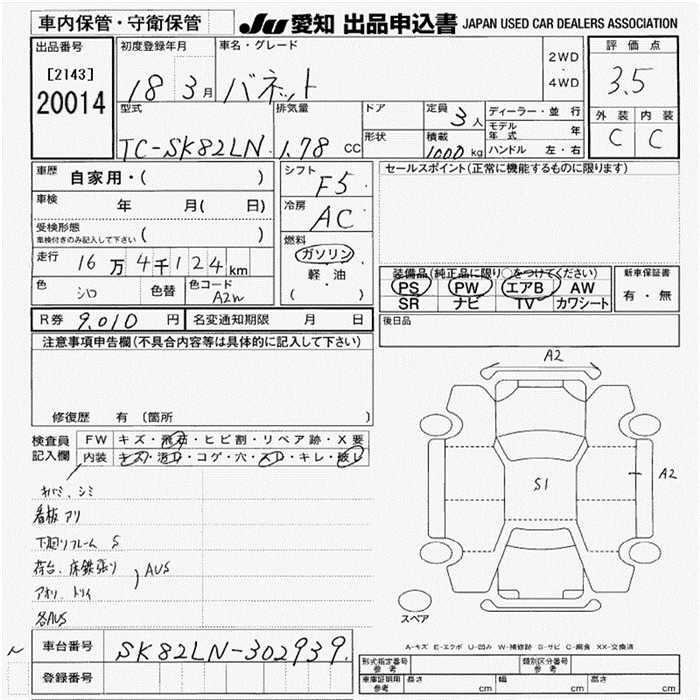 車内保管・守衛保管
JU 愛知 出品申込書 JAPAN USED CAR DEALERS ASSOCIATION
出品番号 初度登録年月 車名・グレード 評価点
[2143]
20014
18 3月 バネット 2WD・4WD 3.5
型式 排気量 ドア 定員 3人 ディーラー・並行 外装 内装
モデル年式 年
形状 積載 1000kg ハンドル 左・右
TC-SK82LN 1.78 CC C C
車歴 自家用・( ) シフト F5 セールスポイント(正常に機能するものに限ります)
車検 年 月( 日) 冷房 AC
受検形態 ( )
車検付きのみ記入して下さい
燃料 ガソリン 軽油 ( )
走行 16万4千124km
装備品(純正品に限り○をつけてください) 新車保証書
PS PW エアB AW 有・無
SR ナビ TV カワシート
色 シロ 色替 色コード A2W
R券 9,010円 名変通知期限 月 日 後日品
注意事項申告欄(不具合内容等は具体的に記入して下さい)
修復歴 有 〔箇所 〕
A2
検査員記入欄 FW キズ・飛石・ヒビ割・リペア跡・X要
内装 キズ・汚レ・コゲ・穴・スレ・キレ・破レ
S1
A2
キバミ、シミ
看板アリ
下廻リフレーム S
荷台、床鉄張り AUS
アオリ、トリイ
各AUS
スペア
A-キズ E-エクボ U-凹み W-補修跡 S-サビ C-腐食 XX-交換済
車台番号 SK82LN-302939
登録番号
形式指定番号 参考 類別区分番号 参考
車庫証明用 参考 長さ cm 幅 cm 高さ cm